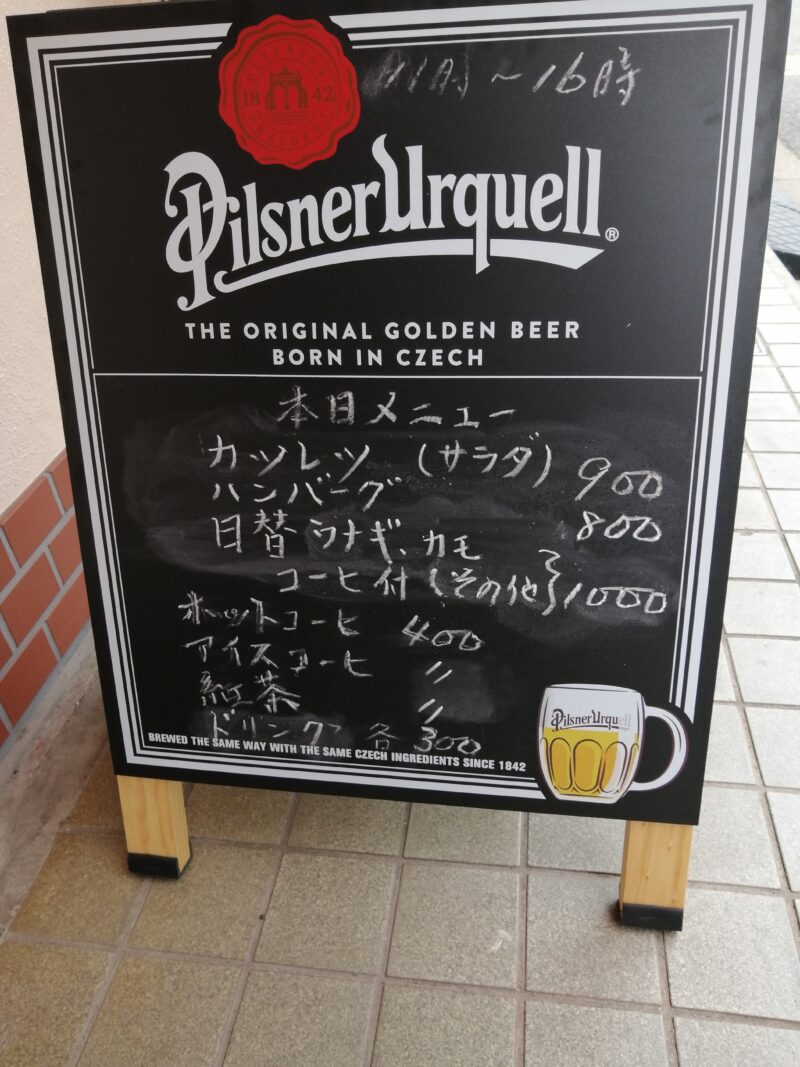 11時～16時
PLZEŇSKÝ
18 42
PRAZDROJ
Pilsner Urquell®
THE ORIGINAL GOLDEN BEER
BORN IN CZECH
本日メニュー
カツレツ (サラダ) 900
ハンバーグ 800
日替 ウナギ、カモ
コーヒ付 {その他} 1000
ホットコーヒ 400
アイスコーヒ 〃
紅茶 〃
ドリンク 各300
BREWED THE SAME WAY WITH THE SAME CZECH INGREDIENTS SINCE 1842
Pilsner Urquell